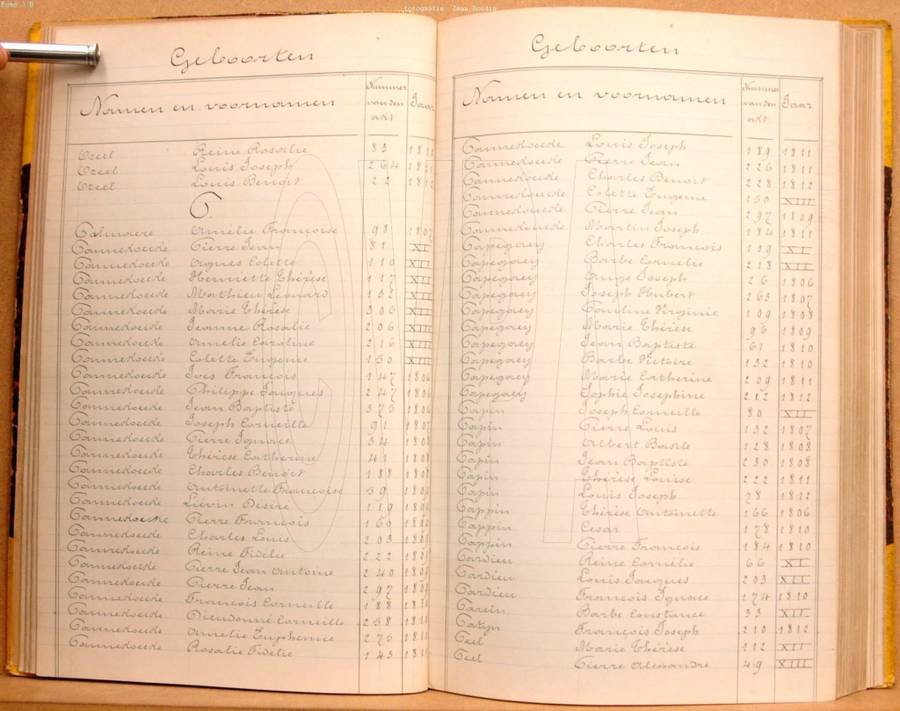 Fotografie:
Geboorten
Namen en voornamen Nummer van den akt Jaar
Ozeel Reine Rosalie 83
Ozeel Louis Joseph 264
Ozeel Louis Benoit 22
T.
Talmaere Amélie Françoise 98 1807
Tannedoede Pierre Jean 81 XI
Tannedoede Agnes Colette 110 XII
Tannedoede Henriette Thérèse 117 XII
Tannedoede Mathieu Leonard 152 XII
Tannedoede Marie Thérèse 306 XII
Tannedoede Jeanne Rosalie 206 XIII
Tannedoede Amelie Caroline 216 XIII
Tannedoede Colette Eugenie 150 XIII
Tannedoede Ives François 147 1806
Tannedoede Philippe Jacques 247 1806
Tannedoede Jean Baptiste 375 1806
Tannedoede Joseph Corneille 91 1807
Tannedoede Pierre Ignace 34
Tannedoede Thérèse Catherine 41
Tannedoede Charles Benoit 188
Tannedoede Antoinette Françoise 59
Tannedoede Lievin Desire 119
Tannedoede Pierre François 160
Tannedoede Charles Louis 203
Tannedoede Reine Fidelie 222
Tannedoede Pierre Jean Antoine 240
Tannedoede Pierre Jean 297
Tannedoede François Corneille 188
Tannedoede Dieudonné Corneille 258
Tannedoede Amelie Euphemie 275
Tannedoede Rosalie Fidelie 143
Geboorten
Namen en voornamen Nummer van den akt Jaar
Tannedoede Louis Joseph 189 1811
Tannedoede Pierre Jean 226 1811
Tannedoede Charles Benoit 228 1812
Tannedoede Colette Eugenie 150 XIII
Tannedoede Pierre Jean 297 1809
Tannedoede Martin Joseph 184 1811
Tapegaey Charles François 139 XI
Tapegaey Barbe Cornelie 218 XII
Tapegaey Ange Joseph 26 1806
Tapegaey Joseph Hubert 263 1807
Tapegaey Caroline Virginie 109 1808
Tapegaey Marie Thérèse 96 1809
Tapegaey Jean Baptiste 61 1810
Tapegaey Barbe Victoire 132 1810
Tapegaey Marie Catherine 209 1811
Tapegaey Sophie Josephine 212 1812
Tapin Joseph Corneille 80 XII
Tapin Pierre Louis 132 1807
Tapin Albert Basile 128 1808
Tapin Jean Baptiste 230 1808
Tapin Thérèse Louise 222 1811
Tapin Louis Joseph 28 1812
Tappin Thérèse Antoinette 166 1806
Tappin Cesar 178 1810
Tappin Pierre François 184 1810
Tardieu Reine Cornelie 66 XI
Tardieu Louis Jacques 203 XII
Tardieu François Ignace 174 1810
Tarein Barbe Constance 33 XII
Tatyn François Joseph 210 1812
Teel Marie Thérèse 112 XII
Teel Pierre Alexandre 49 XIII